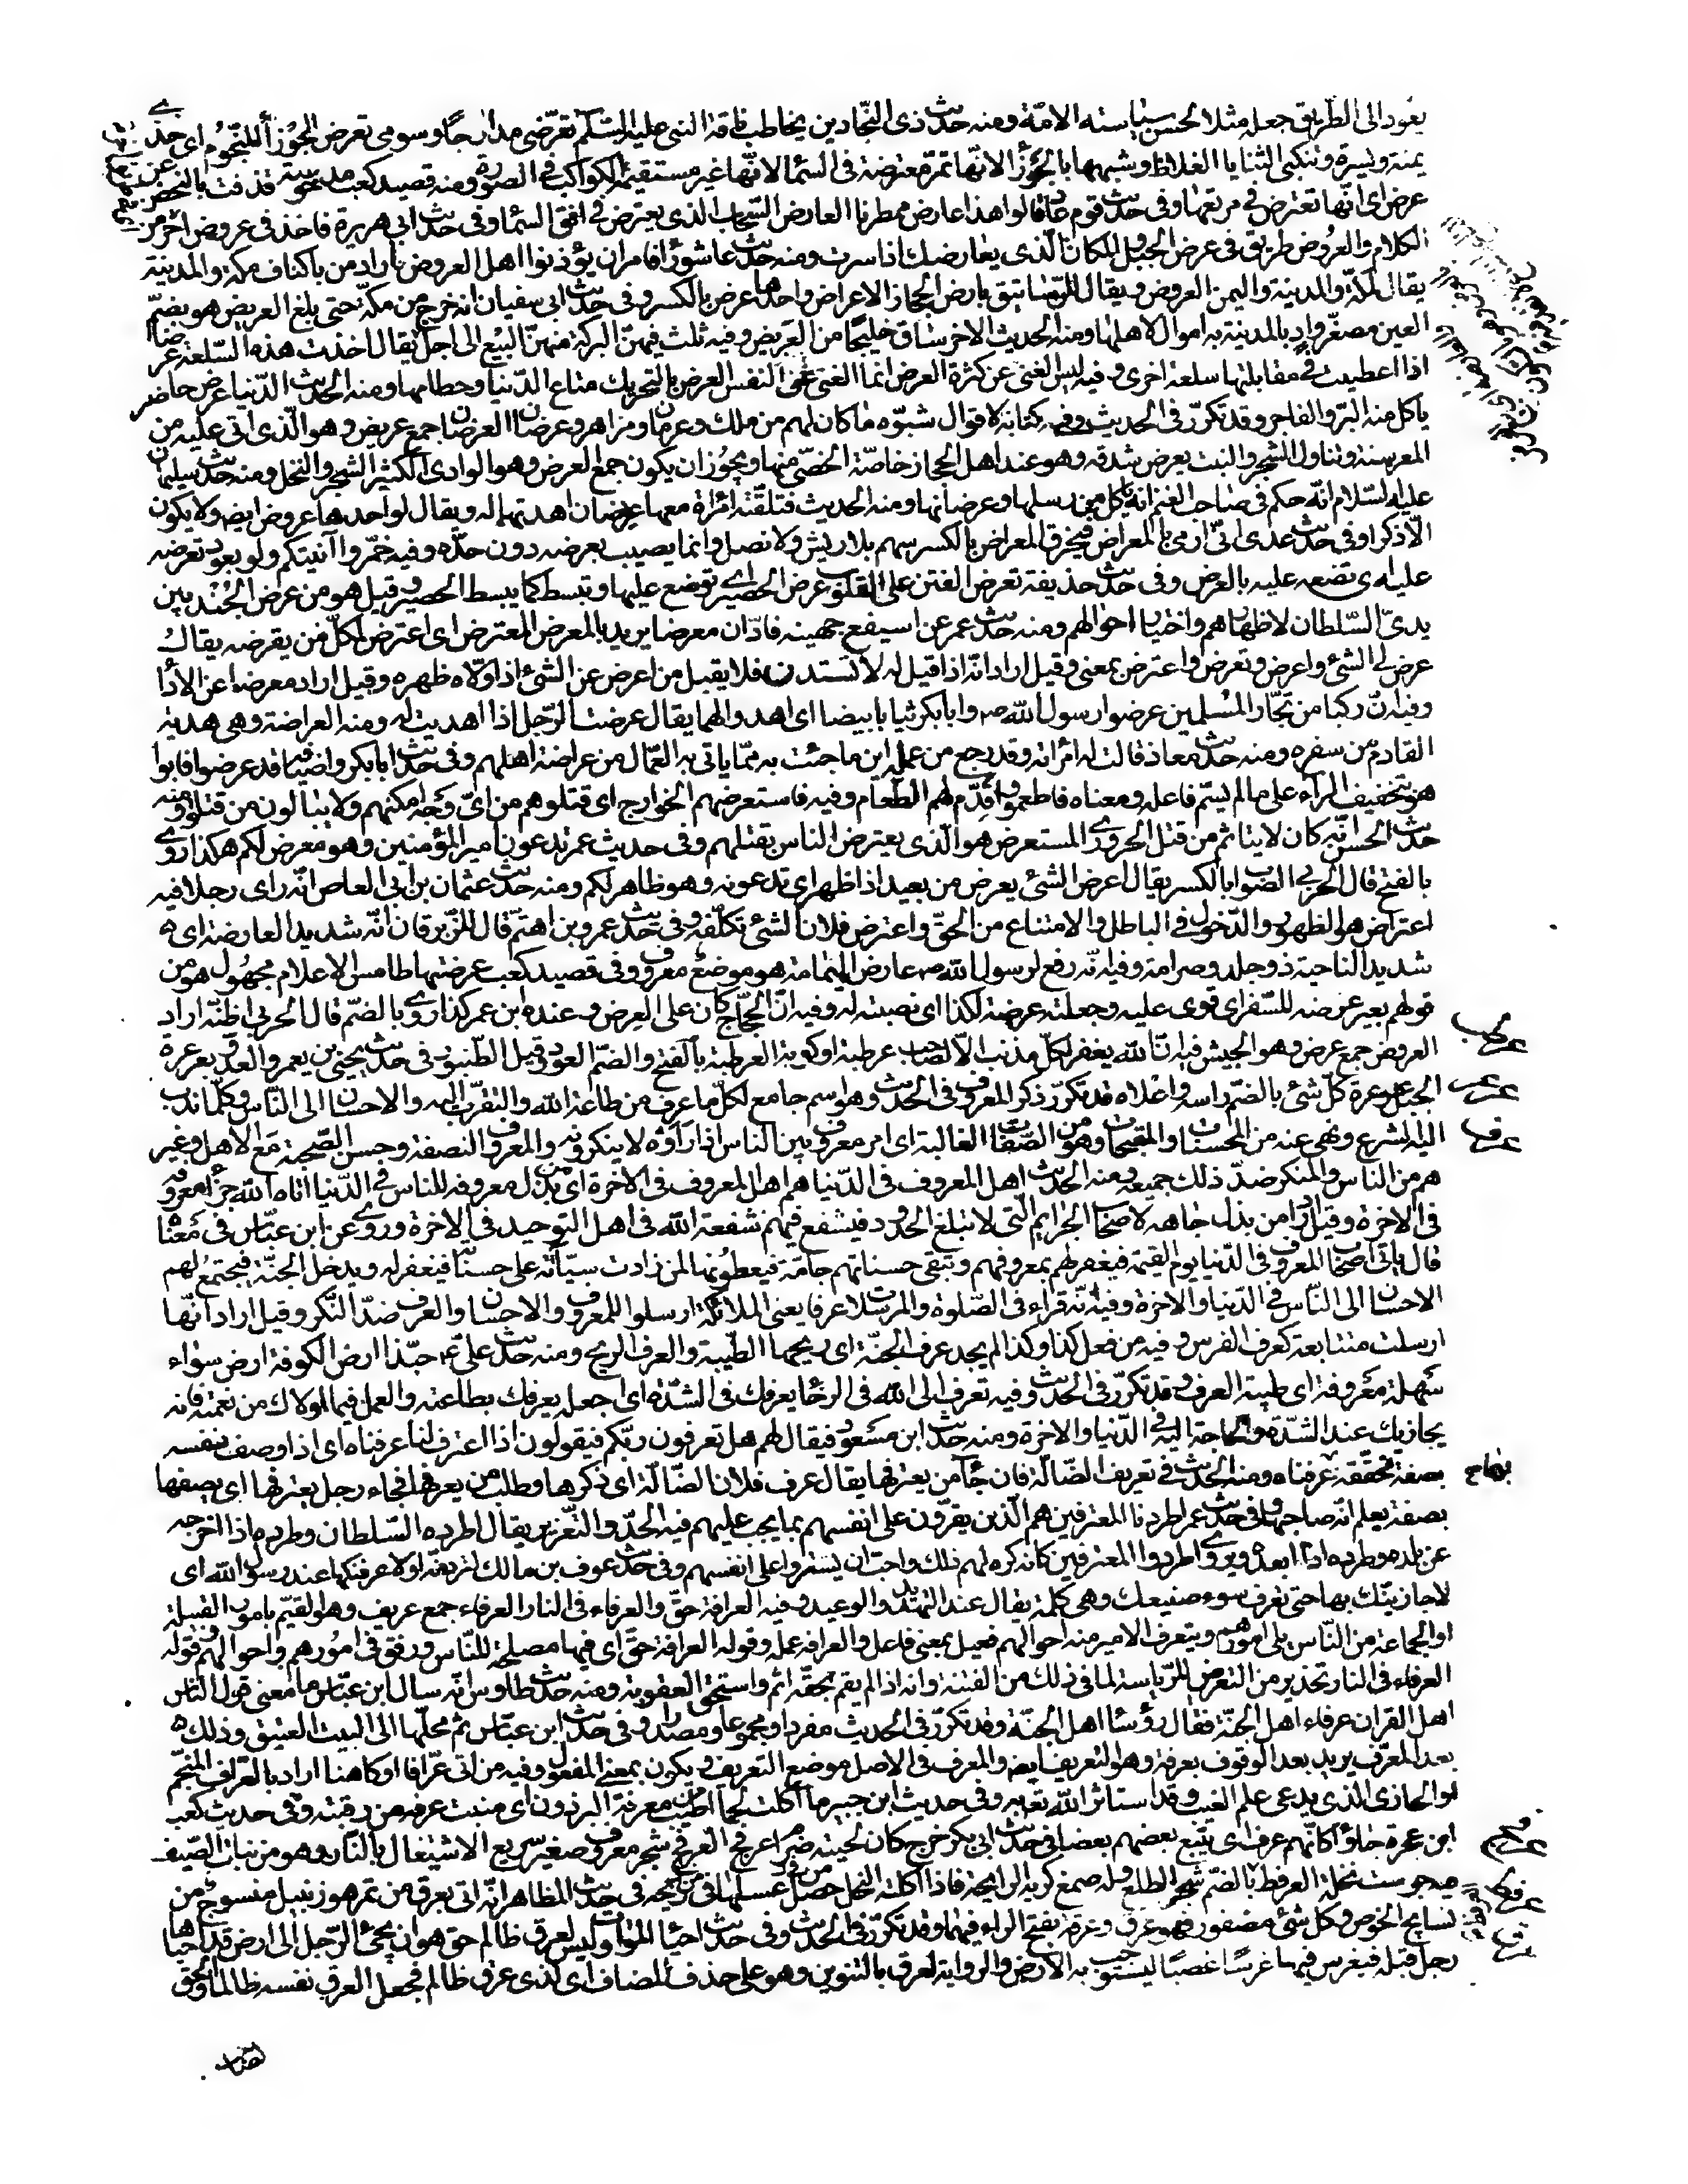 يعود الى الطريق جعله مثلا لحسن سياسته الامة ومنه حديث ذى النجادين يخاطب ناقة النبى عليه السلم تعرّضى مدارجا وسومى تعرض الجوزأ للنجوم اى خذى
يمنة ويسرة وتنكبى الثنايا الغلاظ وشبهها بالجوزأ لانها تمرّ معترضة فى السمآ لانها غير مستقيمة الكواكب فى الصورة ومنه قصيد كعب مدخوسة قذفت بالنحض عن
عرض اى انها تعترض فى مرتعها وفى حديث قوم عاد قالوا هذا عارض ممطرنا العارض السحاب الذى يعترض فى افق السمآ وفى حديث ابى هريرة فاخذ فى عروض اخر من
الكلام والعروض طريق فى عرض الجبل والمكان الّذى يعارضك اذا سرت ومنه حديث عاشورآ فامر ان يؤذنوا اهل العروض اراد من باكناف مكة والمدينة
يقال لمكّة والمدينة واليمن العروض ويقال للرساتيق بارض الحجاز الاعراض واحدها عرض بالكسر وفى حديث ابى سفيان انه خرج من مكة حتى بلغ العريض هو بضمّ
العين مصغّر وادٍ بالمدينة به اموال لاهلها ومنه الحديث الاخر ساق خليجا من العريض وفيه ثلث فيهنّ البركة منهنّ البيع الى اجل يقال اخذت هذه السّلعة عرضا
اذا اعطيت فى مقابلتها سلعة اخرى وفيه ليس الغنى عن كثرة العرض انما الغنى غنى النفس العرض بالتحريك متاع الدّنيا وحطامها ومنه الحديث الدّنيا عرض حاضر
ياكل منه البرّ والفاجر وقد تكرّر فى الحديث وفيه كتابة لاقوال شبوّه ما كان لهم من ملك وعرمان ومزاهر وعرضان العرضان جمع عريض وهو الّذى اتى عليه من
المعز سنة وتناول الشجر والنبت بعرض شدقه وهو عند اهل الحجاز خاصّة الخصىّ منها ويجوز ان يكون جمع العرض وهو الوادى الكثير الشجر والنخل ومنه حديث سليمان
عليه السّلام انّه حكم فى صاحب الغنم انه ياكل من رسلها وعرضانها ومنه الحديث فتلقّته امرأة معها عرضان اهدتهما له ويقال لواحدها عروض ايضا ولا يكون
الّا ذكرا وفى حديث عدى انّى ارمى بالمعراض فيخرق المعراض بالكسر سهم بلا ريش ولا نصل وانما يصيب بعرضه دون حدّه وفيه خمّروا آنيتكم ولو بعود تعرضه
عليه اى تضعه عليه بالعرض وفى حديث حذيفة تعرض الفتن على القلوب عرض الحصير اى توضع عليها وتبسط كما يبسط الحصير وقيل هو من عرض الجند بين
يدىّ السّلطان لاظهارهم واختبار احوالهم ومنه حديث عمر عن اسيفع جهينه فادّان معرضا يريد بالمعرض المعترض اى اعترض لكلّ من يقرضه يقال
عرض لى الشئ واعرض وتعرض واعترض بمعنى وقيل اراد انّه اذا قيل له لا تستدن فلا يقبل من اعرض عن الشئ اذا اولاه ظهره وقيل اراد معرضا عن الأدآ
وفيه انّ ركبا من تجّار المسلمين عرضوا رسول الله صـ وابا بكر ثيابا بيضا اى اهدوا لهما يقال عرضت الرّجل اذا اهديت له ومنه العراضة وهى هدية
القادم من سفره ومنه حديث معاذ قالت له امرأته وقد رجع من عمله اين ما جئت به ممّا ياتى به العمّال من عراضة اهلهم وفى حديث ابابكر واضيافه قد عرضوا فابوا
هو بتخفيف الرآء على ما لم يسمّ فاعله ومعناه فاطعموا وقدّم لهم الطّعام وفيه فاستعرضهم الخوارج اى قتلوهم من اىّ وجه امكنهم ولا يبالون من قتلوا ومنه
حديث الحسن انّه كان لا يتاثم من قتل الحرورى المستعرض هو الّذى يعترض الناس بقتلهم وفى حديث عمر تدعون امير المؤمنين وهو معرض لكم هكذا روى
بالفتح قال الحربى الصواب بالكسر يقال اعرض الشئ يعرض من بعيد اذا ظهر اى تدعونه وهو ظاهر لكم ومنه حديث عثمان بن ابى العاص انّه راى رجلا فيه
اعتراض هو الظهور والدّخول فى الباطل والامتناع من الحقّ واعترض فلان الشئ تكلّفه وفى حديث عمرو بن اهتم قال للزّبرقان انّه شديد العارضة اى ه
شديد الناحية ذو جلد وصرامة وفيه انّه رفع لرسول الله صـ عارض اليمامة هو موضع معروف وفى قصيد كعب عرضتها طامس الاعلام مجهول هو من
قولهم بعير عرضه للسّفر اى قوى عليه وجعلته عرضة لكذا اى نصبته له وفيه انّ الحجّاج كان على العرض وعنده ابن عمر كذا روى بالضمّ قال الحربى اظنّه اراد
العروض جمع عرض وهو الجيش فيه انّ الله يغفر لكلّ مذنب الّا لصاحب عرطبة او كوبة العرطبة بالفتح والضمّ العود وقيل الطّنبور فى حديث يحيى بن يعمر والعدو بعرعرة
الجبل عرعرة كلّ شئ بالضمّ راسه واعلاه قد تكرّر ذكر المعروف فى الحديث وهو اسم جامع لكلّ ما عرف من طاعة الله والتقرّب اليه والاحسان الى النّاس وكلّما ندب
اليه الشرع ونهى عنه من المحسنات والمقبحات وهو من الصفات الغالبة اى امر معروف بين الناس اذا رآوه لا ينكرونه والمعروف النصفة وحسن الصّحبة مع الاهل وغير
هم من الناس والمنكر ضدّ ذلك جميعه ومنه الحديث اهل المعروف فى الدّنيا هم اهل المعروف فى الاخرة اى من بذل معروفه للناس فى الدّنيا اتاه الله جزآء معروفه
فى الاخرة وقيل اراد من بذل جاهه لاصحاب الجرايم الّتى لا تبلغ الحدود فيشفع فيهم شفعه الله فى اهل التوحيد فى الاخرة وروى عن ابن عبّاس فى معناه
قال ياتى اصحاب المعروف فى الدّنيا يوم القيمة فيغفر لهم بمعروفهم وتبقى حسناتهم جامّة فيعطونها لمن زادت سيّآته على حسناته فيغفر له ويدخل الجنّة فيجتمع لهم
الاحسان الى النّاس فى الدّنيا والاخرة وفيه انّه قراء فى الصّلوة والمرسلات عرفا يعنى الملائكة ارسلوا للمعروف والاحسان والعرف ضدّ النّكر وقيل اراد انّها
ارسلت متتابعة كعرف الفرس وفيه من فعل كذا وكذا لم يجد عرف الجنّة اى ريحها الطّيبة والعرف الريح ومنه حديث علىّ عم حبّذا ارض الكوفة ارض سوآء
سهلة معروفة اى طيبة العرف وقد تكرّر فى الحديث وفيه تعرف الى الله فى الرخآ يعرفك فى الشدّة اى اجعله يعرفك بطاعته والعمل فيما اولاك من نعمته فانه
يجازيك عند الشدّة والحاجة اليه فى الدّنيا والاخرة ومنه حديث ابن مسعود فيقال لهم هل تعرفون ربّكم فيقولون اذا اعترف لنا عرفناه اى اذا وصف نفسه
بصفة نحقّقه عرفناه ومنه الحديث فى تعريف الضّالّة فان جآ من يعترفها يقال عرف فلان الضّالّة اى ذكرها وطلب من يعرفها فجاء رجل يعترفها اى يصفها
بصفة يعلم انّه صاحبها وفى حديث عمر اطردنا المعترفين هم الّذين يقرّون على انفسهم بما يجب عليهم فيه الحدّ والتّعزير يقال اطرده السّلطان وطرده اذا اخرجه
عن بلده وطرده اذا ابعده ويروى اطردوا المعترفين كانه كره لهم ذلك واحبّ ان يستروا على انفسهم وفى حديث عوف بن مالك لتردّنه او لاعرفنكها عند رسول الله اى
لاجازينّك بها حتى تعرف سوء صنيعك وهى كلمة يقال عند التهديد والوعيد وفيه العرافة حقّ والعرفاء فى النار العرفاء جمع عريف وهو القيّم بامور القبيلة
او الجماعة من النّاس يلى امورهم ويتعرف الامير منه احوالهم فعيل بمعنى فاعل والعرافه عمله وقوله العرافة حقّ اى فيها مصلحة للنّاس ورفق فى امورهم واحوالهم وقوله
العرفاء فى النار تحذير من التعرض للرّياسة لما فى ذلك من الفتنة وانه اذا لم يقم بحقّه اثم واستحق العقوبة ومنه حديث طاوس انّه سال ابن عبّاس ما معنى قول النّاس
اهل القران عرفاء اهل الجنّة فقال رؤسآ اهل الجنّة وقد تكرّر فى الحديث مفردا ومجموعا ومصدرا وفى حديث ابن عبّاس ثم محلّها الى البيت العتيق وذلك ه
بعد المعرّف يريد بعد الوقوف بعرفة وهو التعريف ايضا والمعرف فى الاصل موضع التعريف ويكون بمعنى المفعول وفيه من اتى عرّافا او كاهنا اراد بالعرّاف المنجّم
او الحازى الذى يدعى علم الغيب وقد استاثر الله تعٰ به وفى حديث ابن جبير ما اكلت لحما اطيب من معرفة البرذون اى منبت عرفه من رقبته وفى حديث كعب
ابن عجرة جاؤا كانّهم عرف اى يتبع بعضهم بعضا فى حديث ابى بكر خرج كان لحيته ضرام عرفج العرفج شجر معروف صغير سريع الاشتعال بالنّار وهو من نبات الصّيف
فيه جرست نحلة العرفط بالضمّ شجر الطلح وله صمغ كريه الرايحة فاذا اكلته النحل حصل فى عسلها من ريحه فى حديث المظاهر انّه اتى بعرق من تمر هو زنبيل منسوج من
نسايج الخوص وكل شئ مضفور فهو عرق وعرقة بفتح الراء فيهما وقد تكرّر فى الحديث وفى حديث احيآ الموات وليس لعرق ظالم حق هو ان يجئ الرّجل الى ارض قد احياها
رجل قبله فيغرس فيها غرسا غصبا ليستوجب به الارض والرواية لعرق بالتنوين وهو على حذف المضاف اى لذى عرق ظالم فجعل العرق نفسه ظالما والحق
عرطب
عرعر
عرف
عرفج
عرفط
عرق